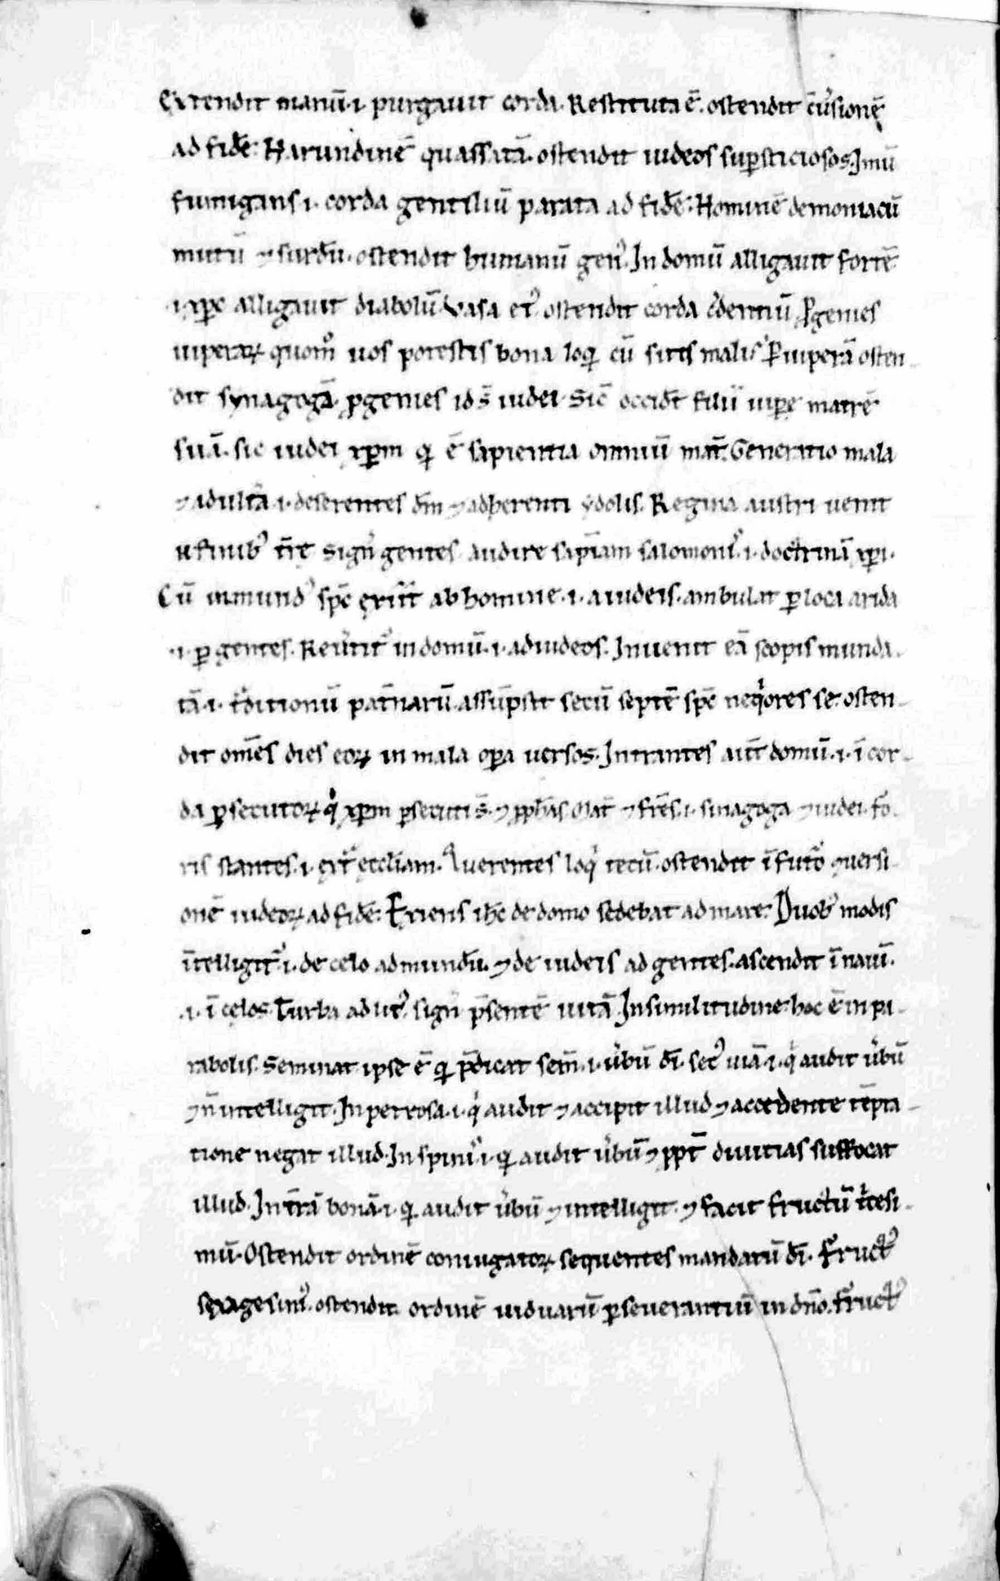 Extendit manū·i· purgauit corda. Restituta ē. ostendit c̄uersionē
ad fidē. Harundinē quassatā. ostendit iudeos suꝑsticiosos. Linū
fumigans·i· corda gentiliū parata ad fidē. Hominē demoniacū
mutū ⁊ surdū. ostendit humanū genꝰ. In domū alligauit fortē
·i· xp̄c alligauit diabolū. Vasa eiꝰ ostendit corda c̄dentiū. Ꝓgenies
uiperaꝝ quom̊ uos potestis bona loqi cū sitis mali. Ꝑ uiperā osten-
dit synagogā. ꝓgenies id ē iudei. Sic̄ occidt̄ filii uipere matrē
suā. sic iudei xp̄m qi ē sapientia omniū mat̄. Generatio mala
⁊ adult̄a·i· deserentes dm̄ ⁊ adherenti ydolis. Regina austri uenit
a finibꝰ tr̄e sign̄ gentes audire sapīam salomonis·i· doctrinā xp̄i.
Cū inmundꝰ sp̄c exirit ab homine·i· a iudeis. ambulat ꝑ loca arida
·i· ꝑ gentes. Reu̾titꝰ in domū·i· ad iudeos. Inuenit eā scopis munda-
tā·i· t̄ditionū pat̄narū. assūpsit secū septē sp̄c neqiores se. osten-
dit om̄es dies eoꝝ in mala oꝑa uersos. Intrantes aut̄ domū·i· ī cor-
da ꝑsecutoꝝ qi xp̄m ꝑsecuti s̄ ⁊ ꝓph̄as. Mat̄ ⁊ fr̄es·i· sinagoga ⁊ iudei. fo-
ris stantes·i· ext̾ ecclīam. Querentes loqi tecū. ostendit ī futo̾ ꝯuersi-
onē iudeoꝝ ad fidē. Exiens ih̄c de domo sedebat ad mare. Duobꝰ modis
ītelligitꝰ·i· de celo ad mundū. ⁊ de iudeis ad gentes. ascendit ī nauī.
·i· ī celos. Turba ad litꝰ sign̄ p̄sentē uitā. In similitudine. hoc ē in pa-
rabolis. Seminat ipse ē qi p̄dicat sem̄·i· u̾bū dī. secꝰ uiā·i· qi audit u̾bū
⁊ n̄ intelligit. In petrosa·i· qi audit ⁊ accipit illud ⁊ accedente tēpta-
tione negat illud. In spinis·i· qi audit u̾bū ⁊ ꝓpt̄ diuitias suffocat
illud. In tr̄a bonā·i· qi audit u̾bū ⁊ intelligit ⁊ facit fructū t̄cesi-
mū. Ostendit ordinē coniugatoꝝ sequentes mandatū dī. Fructꝰ
sexagesimꝰ. ostendit ordinē uiduarū ꝑseuerantiū in dn̄o. fructꝰ